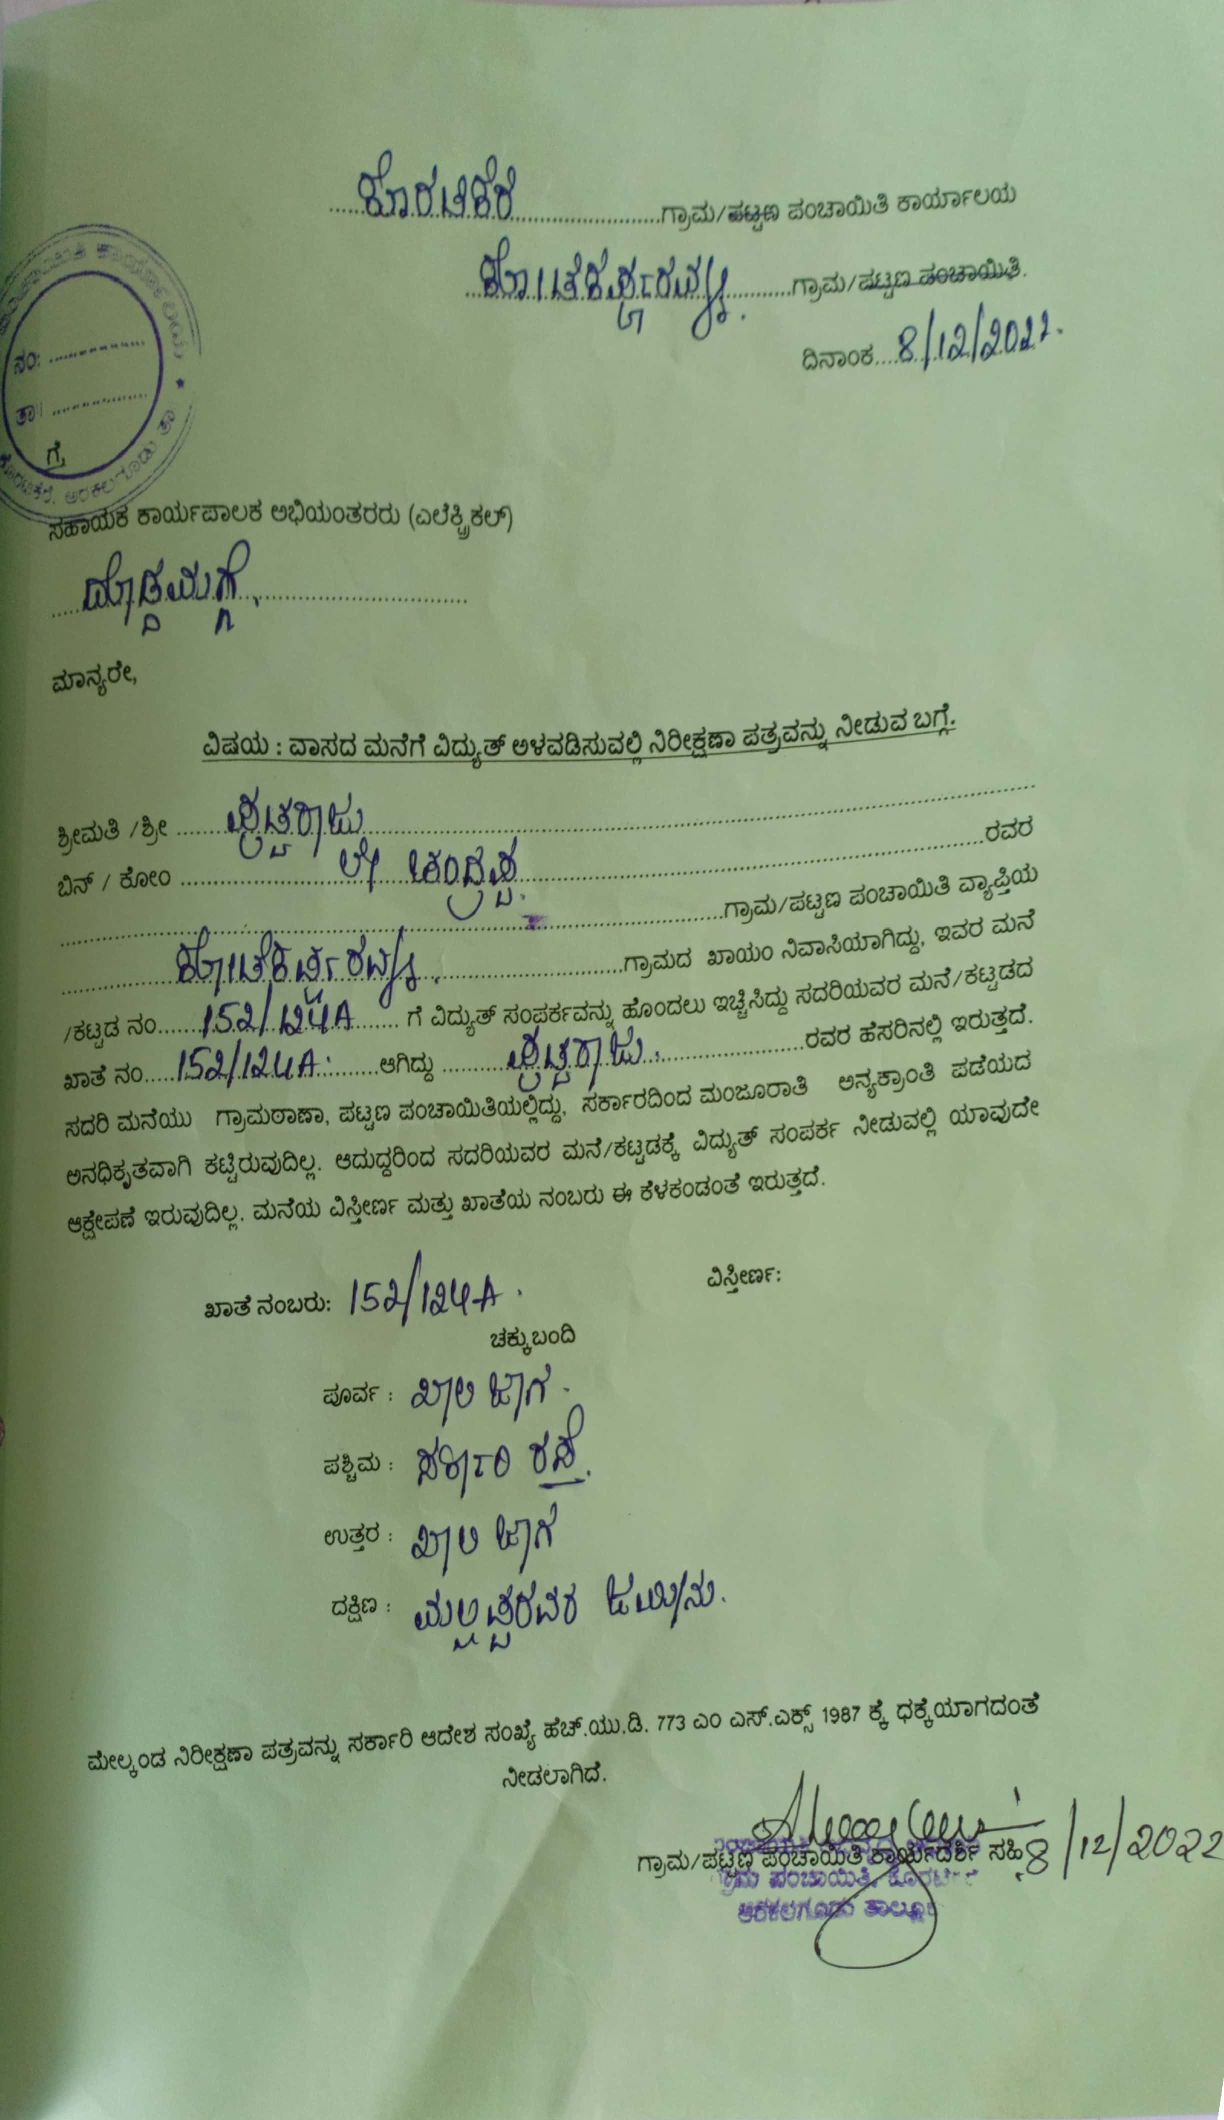 ಕೊರಟಿಕೆರೆ ಗ್ರಾಮ/ಪಟ್ಟಣ ಪಂಚಾಯಿತಿ ಕಾರ್ಯಾಲಯ
ಗ್ರಾಮ/ಪಟ್ಟಣ ಪಂಚಾಯಿತಿ.
ದಿನಾಂಕ 8/12/2022.
ಕಾರ್ಯಾಲಯ
ನಂ:
ತಾ:
ಕೊರಟಿಕೆರೆ, ಅರಕಲಗೂಡು ತಾ
ಗೆ,
ಸಹಾಯಕ ಕಾರ್ಯಪಾಲಕ ಅಭಿಯಂತರರು (ಎಲೆಕ್ಟ್ರಿಕಲ್)
ದೊಡ್ಡಮಗ್ಗೆ.
ಮಾನ್ಯರೇ,
ವಿಷಯ : ವಾಸದ ಮನೆಗೆ ವಿದ್ಯುತ್ ಅಳವಡಿಸುವಲ್ಲಿ ನಿರೀಕ್ಷಣಾ ಪತ್ರವನ್ನು ನೀಡುವ ಬಗ್ಗೆ.
ಶ್ರೀಮತಿ /ಶ್ರೀ ಪುಟ್ಟರಾಜು
ಬಿನ್ / ಕೋಂ ಲೇ ಚಂದ್ರಪ್ಪ. ರವರ
ಗ್ರಾಮ/ಪಟ್ಟಣ ಪಂಚಾಯಿತಿ ವ್ಯಾಪ್ತಿಯ
ಗ್ರಾಮದ ಖಾಯಂ ನಿವಾಸಿಯಾಗಿದ್ದು, ಇವರ ಮನೆ
/ಕಟ್ಟಡ ನಂ 152/124A ಗೆ ವಿದ್ಯುತ್ ಸಂಪರ್ಕವನ್ನು ಹೊಂದಲು ಇಚ್ಚಿಸಿದ್ದು ಸದರಿಯವರ ಮನೆ/ಕಟ್ಟಡದ
ಖಾತೆ ನಂ 152/124A. ಆಗಿದ್ದು ಪುಟ್ಟರಾಜು. ರವರ ಹೆಸರಿನಲ್ಲಿ ಇರುತ್ತದೆ.
ಸದರಿ ಮನೆಯು ಗ್ರಾಮಠಾಣಾ, ಪಟ್ಟಣ ಪಂಚಾಯಿತಿಯಲ್ಲಿದ್ದು, ಸರ್ಕಾರದಿಂದ ಮಂಜೂರಾತಿ ಅನ್ಯಕ್ರಾಂತಿ ಪಡೆಯದ
ಅನಧಿಕೃತವಾಗಿ ಕಟ್ಟಿರುವುದಿಲ್ಲ. ಆದುದ್ದರಿಂದ ಸದರಿಯವರ ಮನೆ/ಕಟ್ಟಡಕ್ಕೆ ವಿದ್ಯುತ್ ಸಂಪರ್ಕ ನೀಡುವಲ್ಲಿ ಯಾವುದೇ
ಆಕ್ಷೇಪಣೆ ಇರುವುದಿಲ್ಲ. ಮನೆಯ ವಿಸ್ತೀರ್ಣ ಮತ್ತು ಖಾತೆಯ ನಂಬರು ಈ ಕೆಳಕಂಡಂತೆ ಇರುತ್ತದೆ.
ಖಾತೆ ನಂಬರು: 152/124A. ವಿಸ್ತೀರ್ಣ:
ಚಕ್ಕುಬಂದಿ
ಪೂರ್ವ : ಖಾಲಿ ಜಾಗ.
ಪಶ್ಚಿಮ : ಸರ್ಕಾರಿ ರಸ್ತೆ.
ಉತ್ತರ : ಖಾಲಿ ಜಾಗ
ದಕ್ಷಿಣ : ಮಲ್ಲಪ್ಪರವರ ಜಮೀನು.
ಮೇಲ್ಕಂಡ ನಿರೀಕ್ಷಣಾ ಪತ್ರವನ್ನು ಸರ್ಕಾರಿ ಆದೇಶ ಸಂಖ್ಯೆ ಹೆಚ್.ಯು.ಡಿ. 773 ಎಂ ಎಸ್.ಎಕ್ಸ್ 1987 ಕ್ಕೆ ಧಕ್ಕೆಯಾಗದಂತೆ
ನೀಡಲಾಗಿದೆ.
ಗ್ರಾಮ/ಪಟ್ಟಣ ಪಂಚಾಯಿತಿ ಕಾರ್ಯದರ್ಶಿ ಸಹಿ 8/12/2022
ಗ್ರಾಮ ಪಂಚಾಯಿತಿ, ಕೊರಟಿಕೆರೆ
ಅರಕಲಗೂಡು ತಾಲ್ಲೂಕು